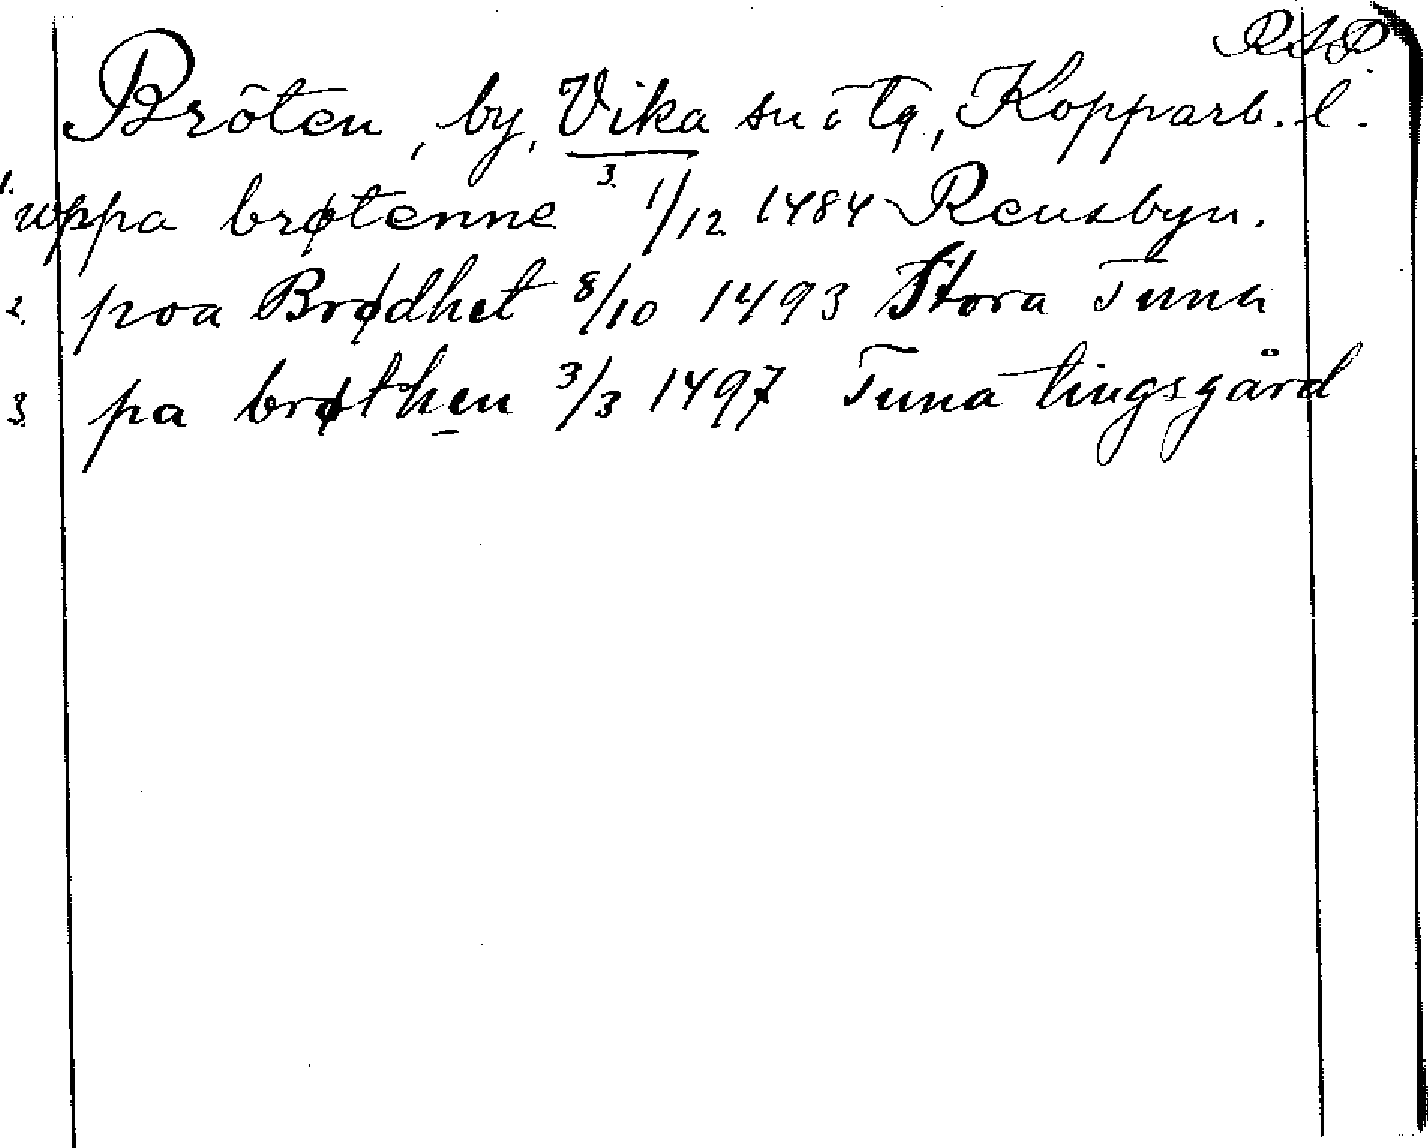 RAP
Bröten, by, Vika sn o tg, Kopparb. l.
3.
1. uppa brøtenne 1/12 1484 Rensbyn.
2. poa Brødhet 8/10 1493 Stora Tuna
3. pa brøthen 3/3 1497 Tuna tingsgård